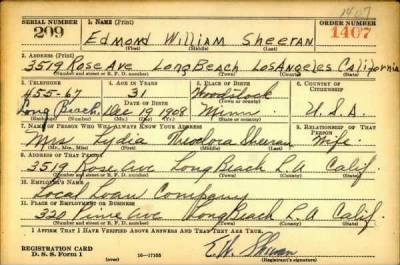 1407
SERIAL NUMBER 1. NAME (Print) ORDER NUMBER
209 Edmond William Sheeran 1407
(First) (Middle) (Last)
2. ADDRESS (Print)
3519 Rose Ave Long Beach Los Angeles California
(Number and street or R. F. D. number) (Town) (County) (State)
3. TELEPHONE 4. AGE IN YEARS 5. PLACE OF BIRTH 6. COUNTRY OF CITIZENSHIP
455-67 31 Woodstock
DATE OF BIRTH (Town or county)
Long Beach Dec 19 1908 Minn. U.S.A.
(Exchange) (Number) (Mo.) (Day) (Yr.) (State or country)
7. NAME OF PERSON WHO WILL ALWAYS KNOW YOUR ADDRESS 8. RELATIONSHIP OF THAT PERSON
Mrs. Lydia Theodora Sheeran Wife
(Mr., Mrs., Miss) (First) (Middle) (Last)
9. ADDRESS OF THAT PERSON
3519 Rose Ave Long Beach L.A Calif
(Number and street or R. F. D. number) (Town) (County) (State)
10. EMPLOYER'S NAME
Local Loan Company
11. PLACE OF EMPLOYMENT OR BUSINESS
320 Pine Ave Long Beach L.A Calif.
(Number and street or R. F. D. number) (Town) (County) (State)
I AFFIRM THAT I HAVE VERIFIED ABOVE ANSWERS AND THAT THEY ARE TRUE.
REGISTRATION CARD E.W. Sheeran
D. S. S. Form 1 (over) 16-17105 (Registrant's signature)